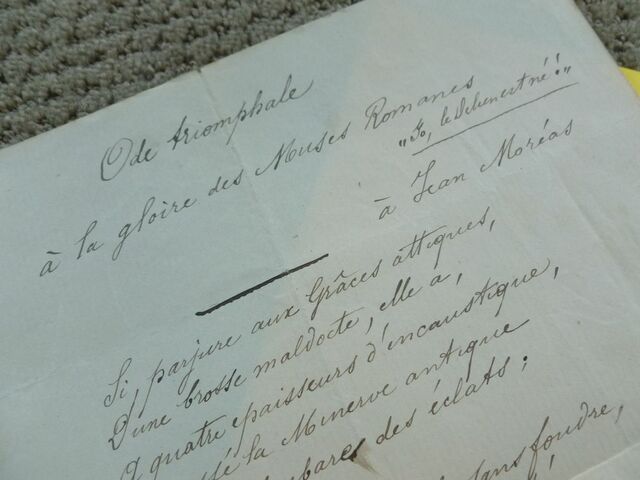 Ode triomphale
à la gloire des Muses Romanes
"Io, le
à Jean Moréas
Si, parjure aux Grâces attiques,
D'une brosse maldocte, elle a,
A quatre épaisseurs d'encaustique,
la Minerve antique
des éclats;
sans foudre,